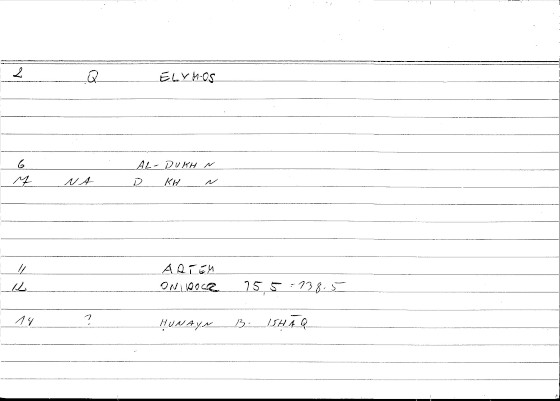 2 Q ELYMOS
6 AL-DUKH N
17 NA D KH N
11 ARTEM
12 ONIROCR 75,5-138.5
14 ? ḤUNAYN B. ISḤĀQ